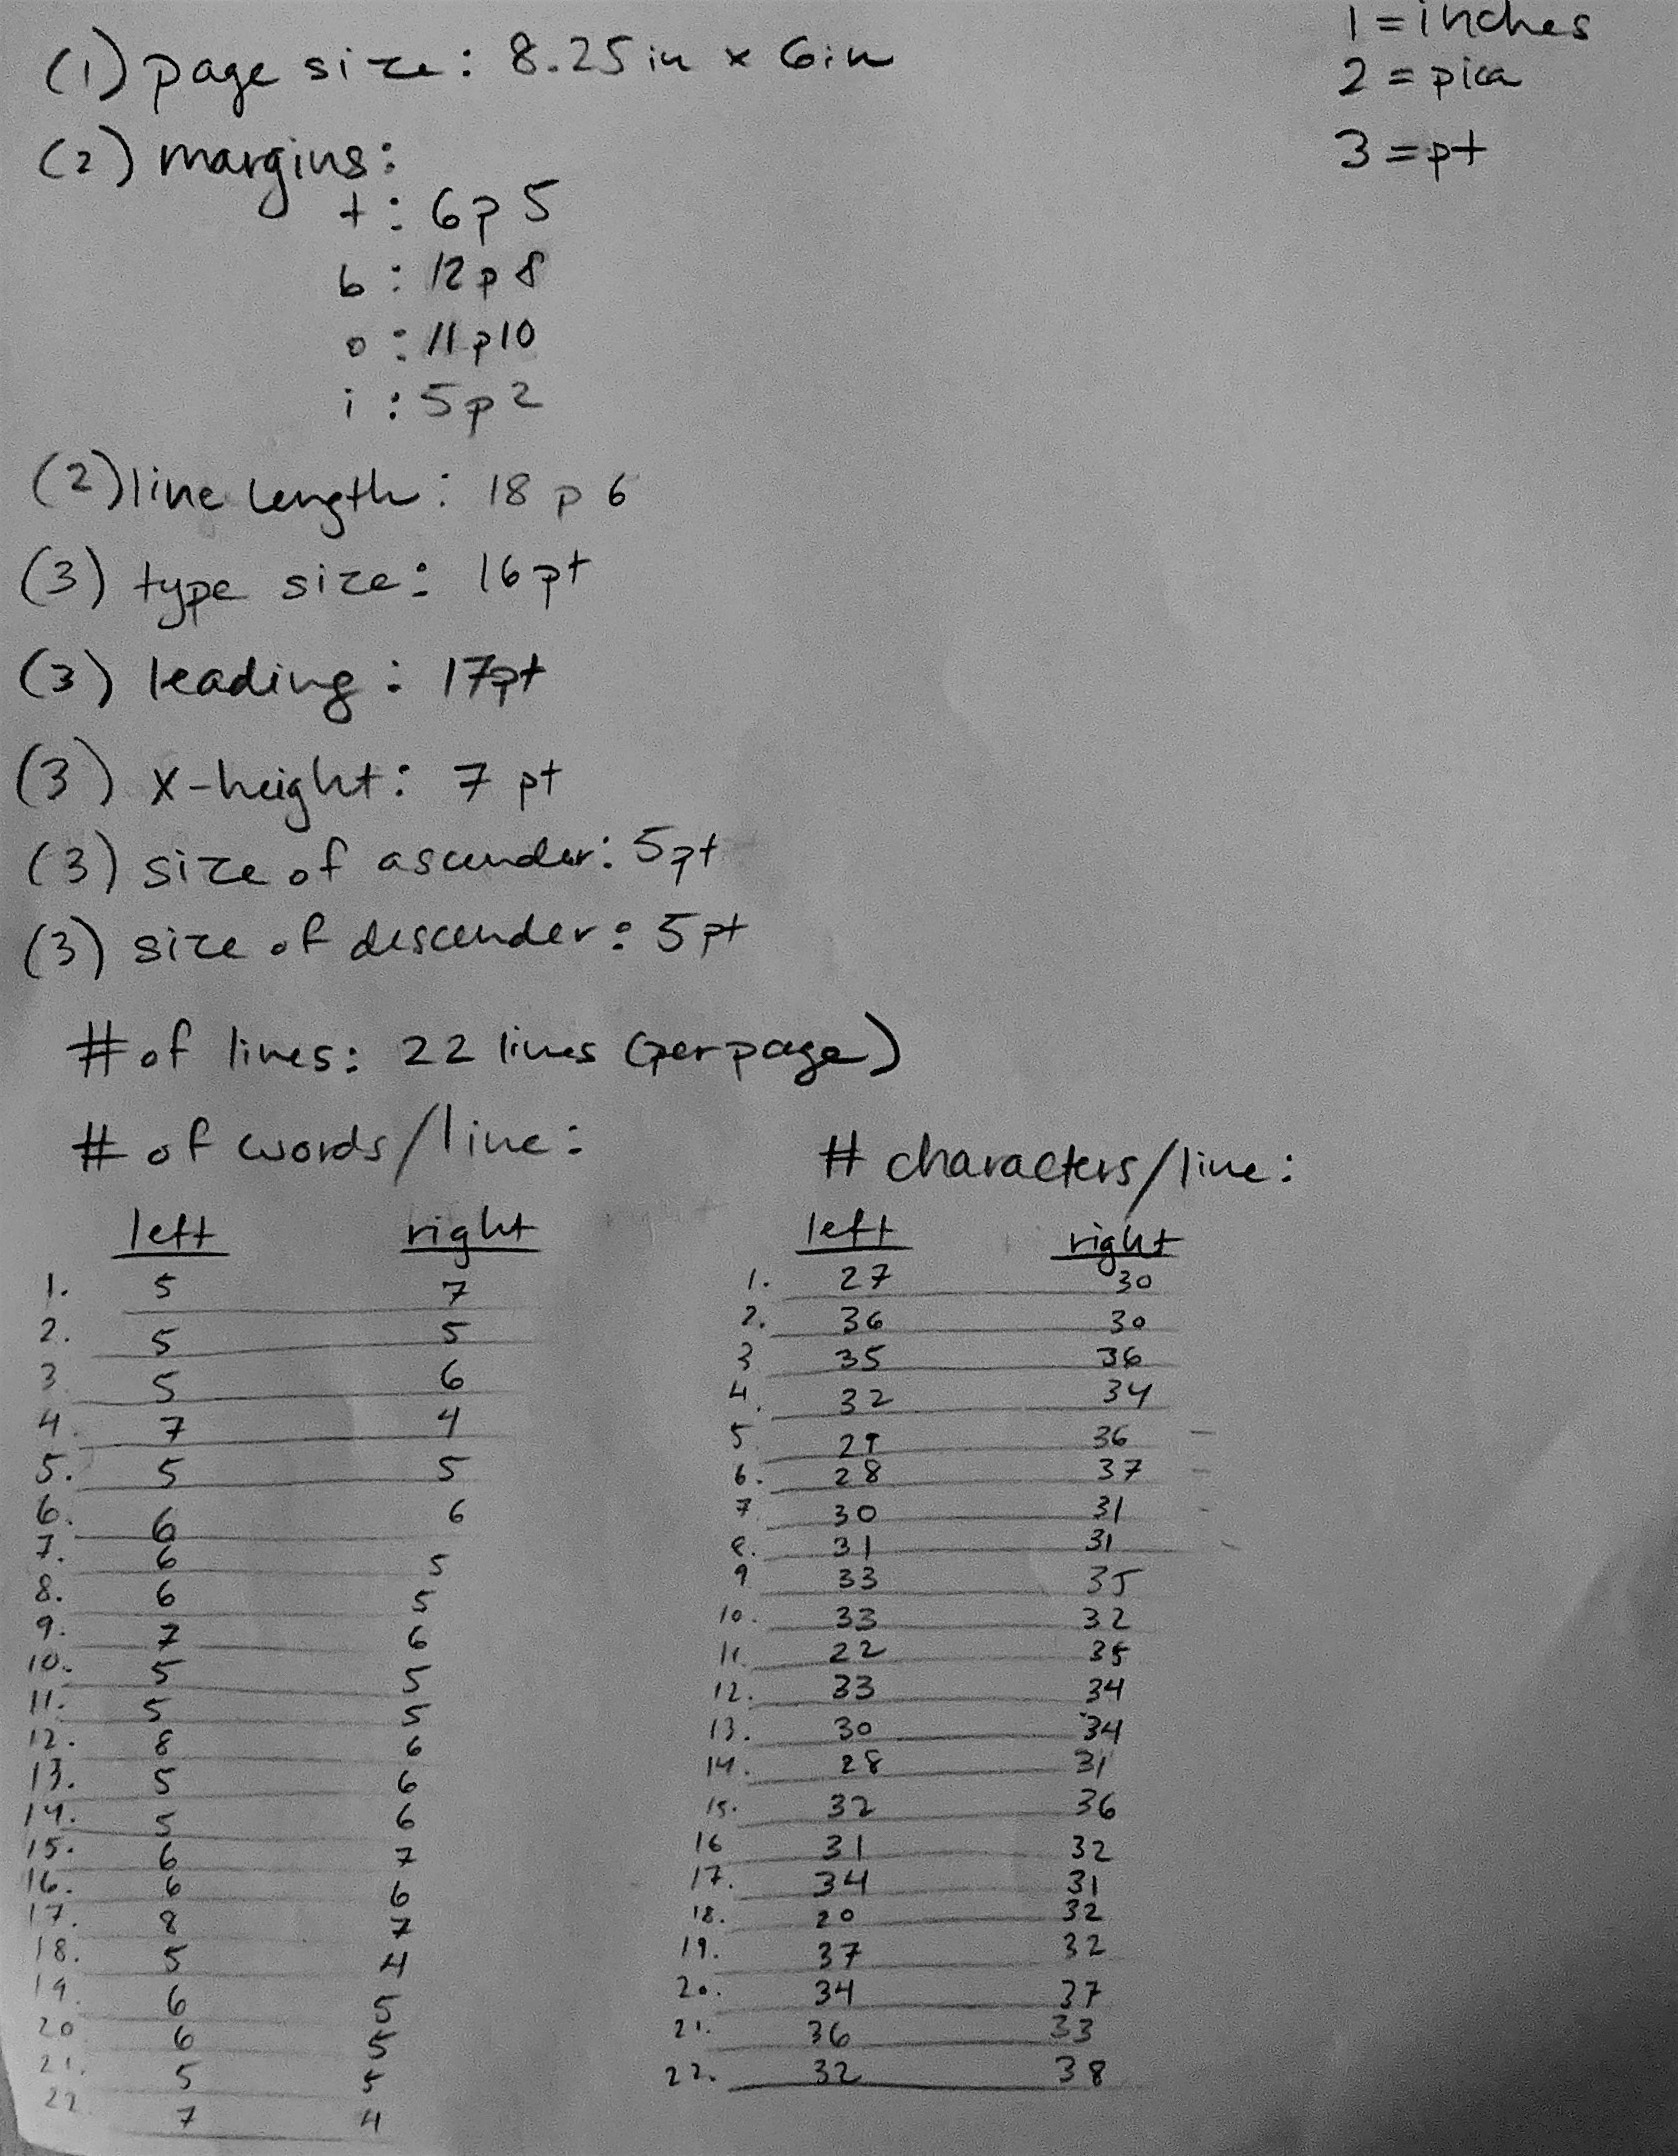 1 = inches
(1) page size: 8.25in x 6in
2 = pica
(2) margins:
3 = pt
t: 6p5
b: 12p8
o: 11p10
i: 5p2
(2) line length: 18p6
(3) type size: 16pt
(3) leading: 17pt
(3) x-height: 7 pt
(3) size of ascender: 5pt
(3) size of descender: 5pt
# of lines: 22 lines (per page)
# of words/line:
left right
1. 5 7
2. 5 5
3 5 6
4. 7 4
5. 5 5
6. 6 6
7. 6 5
8. 6 5
9. 7 6
10. 5 5
11. 5 5
12. 8 6
13. 5 6
14. 5 6
15. 6 7
16. 6 6
17. 8 7
18. 5 4
19. 6 5
20 6 5
21. 5 5
22 7 4
# characters/line:
left right
1. 27 30
2. 36 30
3 35 36
4. 32 34
5 36
6. 28 37
7 30 31
8. 31 31
9 33 35
10. 33 32
11. 22 35
12. 33 34
13. 30 34
14. 28 31
15. 32 36
16 31 32
17. 34 31
18. 20 32
19. 37 32
20. 34 37
21. 36 33
22. 32 38